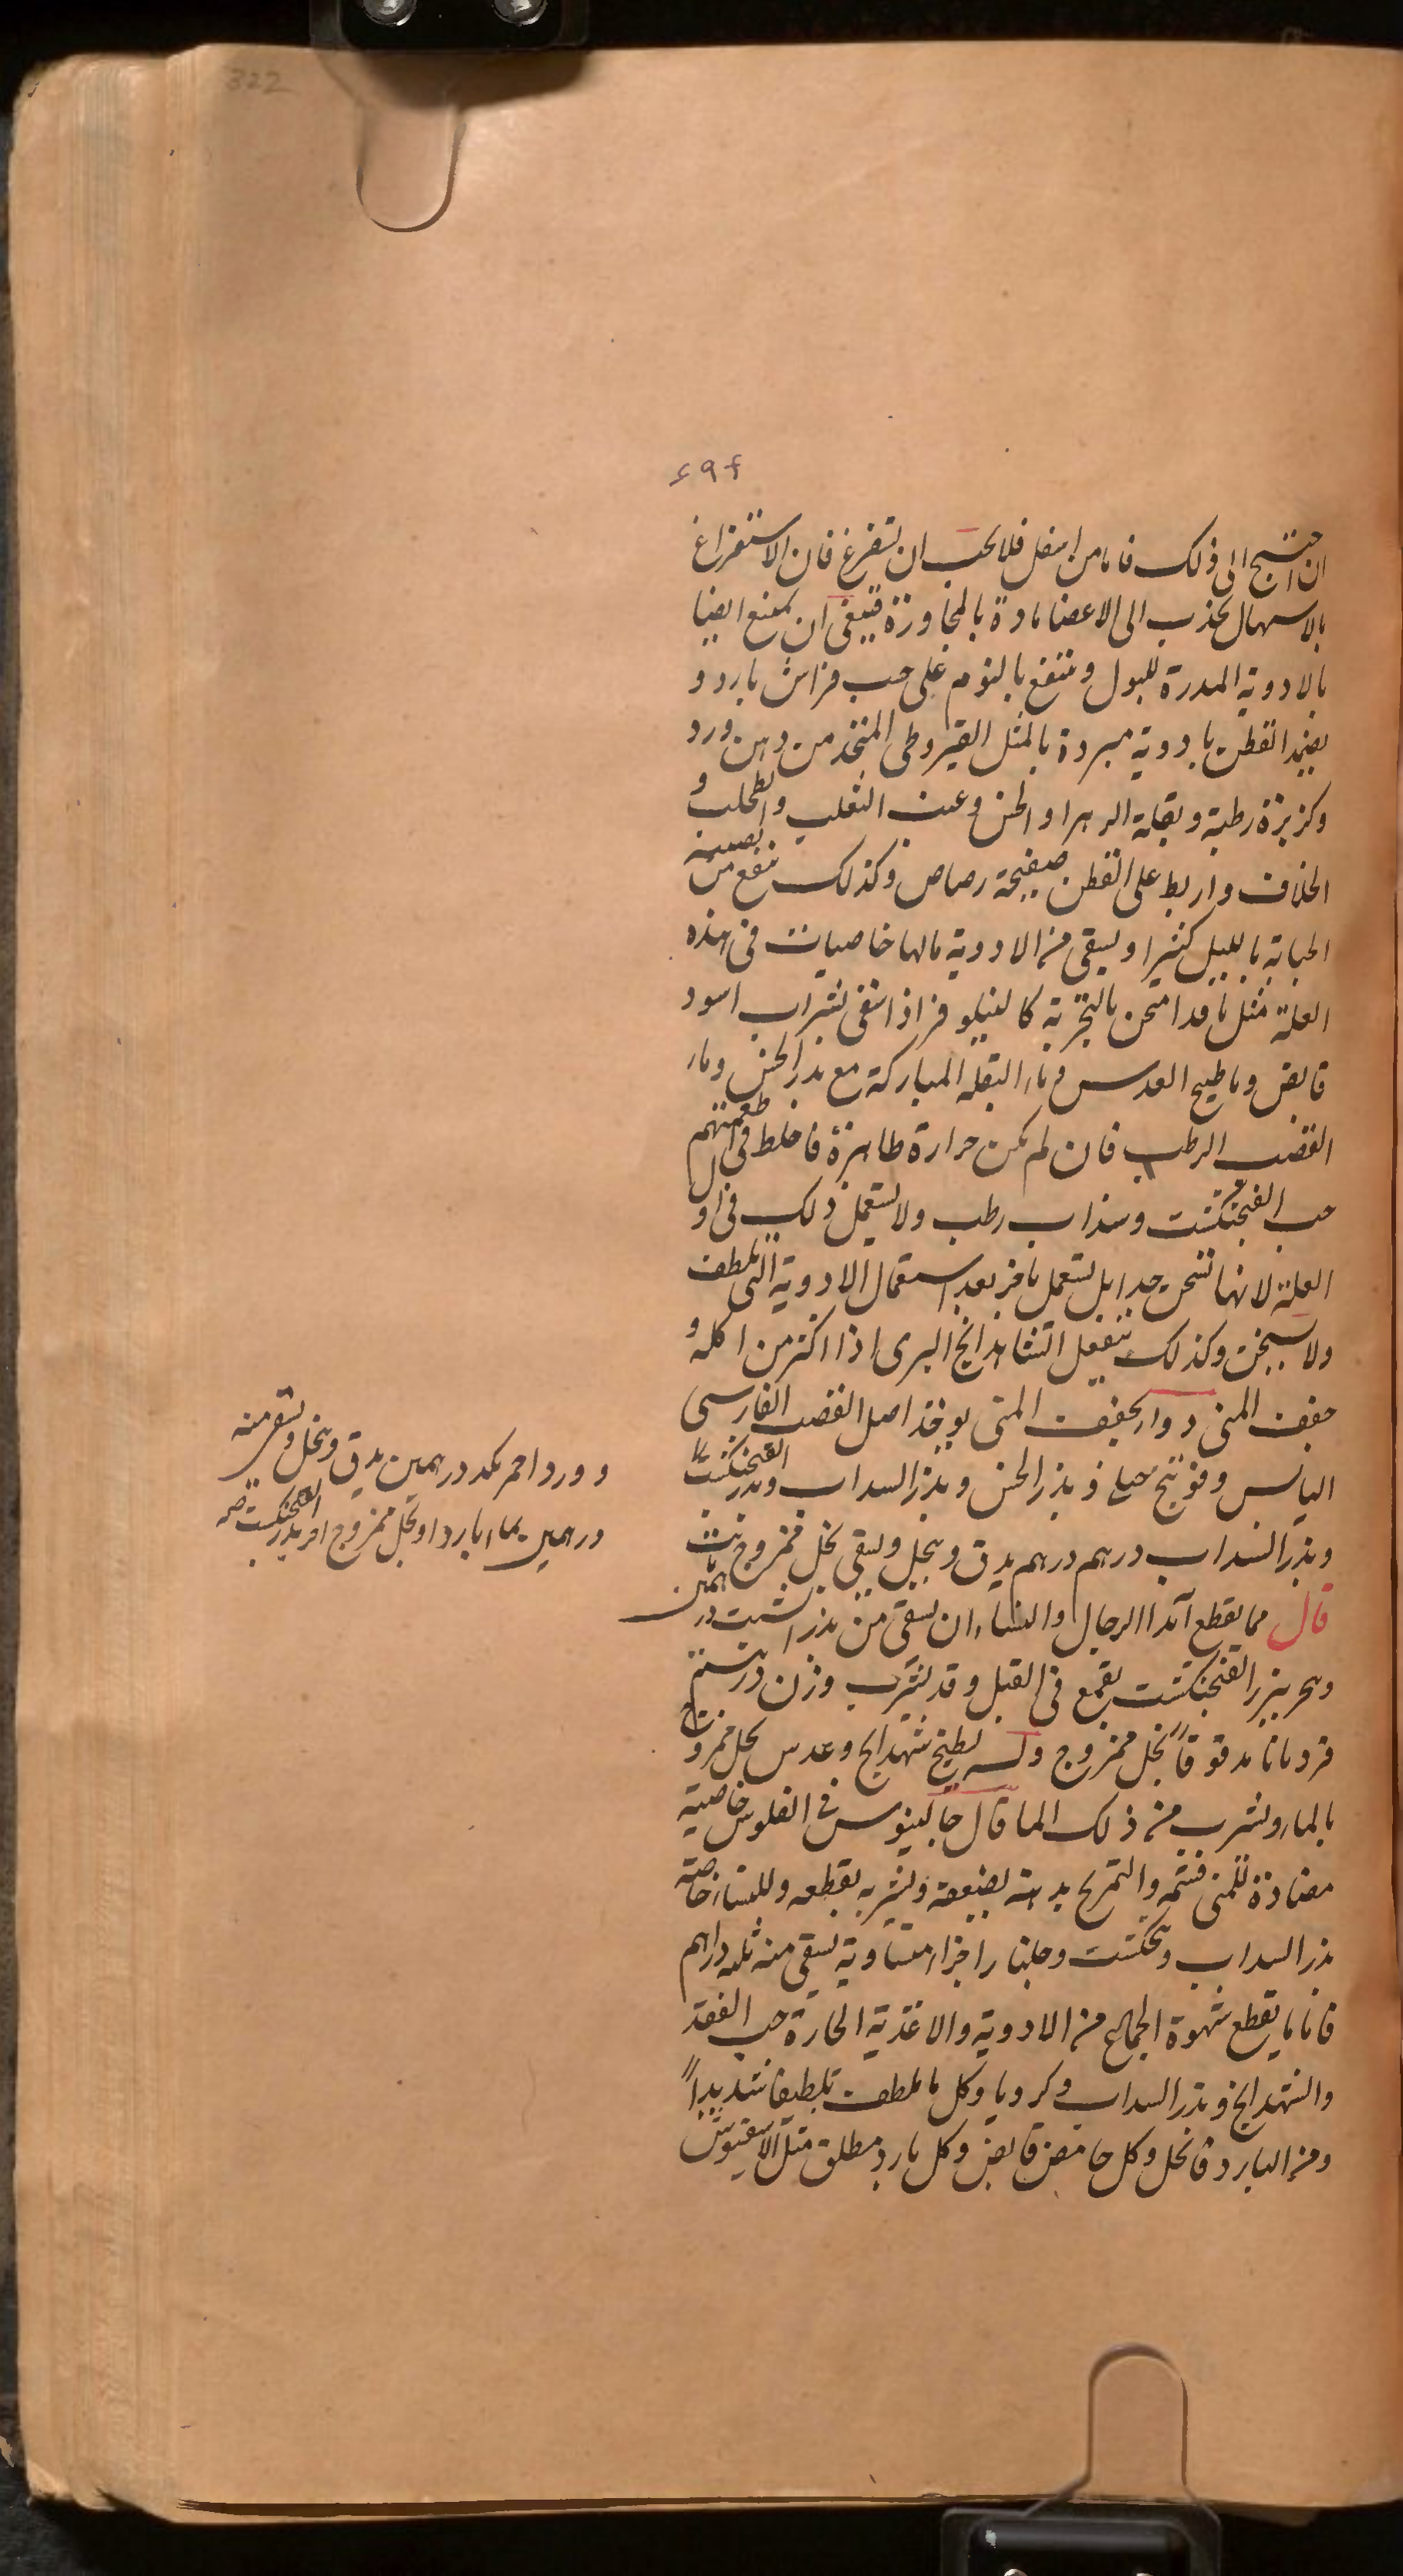 322
٤٩٤
ان احتيج الى ذلك فاما من اسفل فلا يجب ان تستفرغ فان الاستفراغ
بالاسهال يجذب الى الاعضا مادة بالمجاورة فينبغى ان يمنع ايضا
بالادوية المدرة للبول وينتفع بالنوم على جنب فراش بارد و
يضمد القطن بادوية مبردة بالمثل القيروطى المتخذ من دهن ورد
وكزبزة رطبة وبقلة الزهرا والخس وعنب الثعلب والطحلب و
الخلاف واربط على القطن صفيحة رصاص وكذلك ينفع من تصيبه
الجنابة بالليل كثيرا ويسقى من الادوية مالها خاصيات فى هذه
العلة مثل ما قد امتحن بالتجربة كالنيلوفر اذا سقى بشراب اسود
قابض وماطبيخ العدس وماء البقلة المباركة مع بذر الخس وماء
القضب الرطب فان لم يكن حرارة ظاهرة فاخلط فى اطعمتهم
حب الفنجنكشت وسذاب رطب ولا تستعمل ذلك فى اول
العلة لانها تسخن جدا بل تستعمل باخر بعد استعمال الادوية التى تلطف
ولا تسخن وكذلك يفعل الشاهدانج البرى اذا اكثر من اكله و
جفف المنى دواء يجفف المنى يوخذ اصل القصب الفارسى
اليابس وفوتنج جبلى وبذر الخس وبذر السداب وبذر الفنجنكشت
وبذر السداب درهم درهم يدق وينخل ويسقى بخل ممزوج
قال مما يقطع آبدا الرجال والنساء ان يسقى من بذر الشبت درهمين
وبحر ببزر الفنجنكشت بقمع فى القبل وقد يشرب وزن درهم
قردمانا مدقوقاً بخل ممزوج وله يطبخ شهدانج وعدس بخل ممزوج
بالماء ويشرب من ذلك الما قال جالينوس فى الفلوس خاصية
مضادة للمنى فشمه والتمريخ بدهنه يضعفه وشربه يقطعه وللنساء خاصة
بذر السداب وفنجنكشت وجلنار اجزاء متساوية يسقى منه ثلثه دراهم
فاما ما يقطع شهوة الجماع من الادوية والاغذية الحارة حب الفقد
والشهدانج وبذر السداب وكرويا وكل ما يلطف تلطيفا شديداً
ومن البارد فالخل وكل حامض قابض وكل بارد مطلق مثل الافيون
و ورد احمر بكد درهمين يدق وينخل ويسقى منه
درهمين بماء بارد او بخل ممزوج اخر بذر الفنجنكشت صح